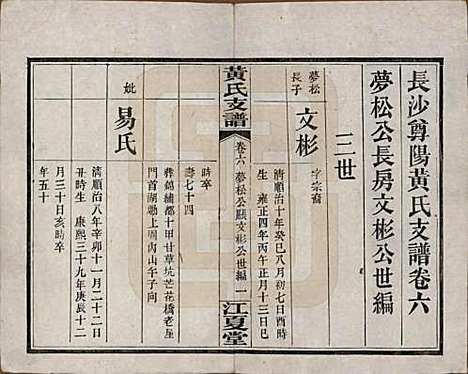 長沙尊陽黃氏支譜卷六
夢松公長房文彬公世編
三世
夢松
長子
文彬
字宗裔
清順治十年癸巳八月初七日酉時
生 雍正四年丙午正月十三日巳
黃氏支譜
卷六 夢松公房文彬公世編 一
江夏堂
時卒
壽七十四
葬錦繡都十甘甘草坑芒花橋老屋
門首湖泐上周內山午子向
妣
易氏
清順治八年辛卯十一月二十二日
丑時生 康熙三十九年庚辰十二
月三十日亥時卒
年五十